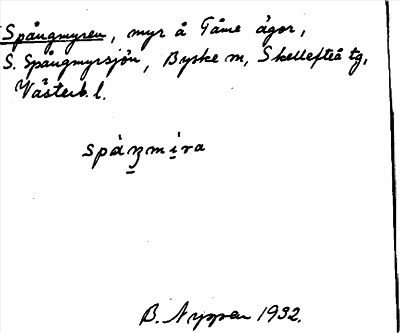 Spångmyren, myr å Tåme ägor,
S. Spångmyrsjön, Byske sn, Skellefteå tg,
Västerb. l.
B. Nyman 1932.